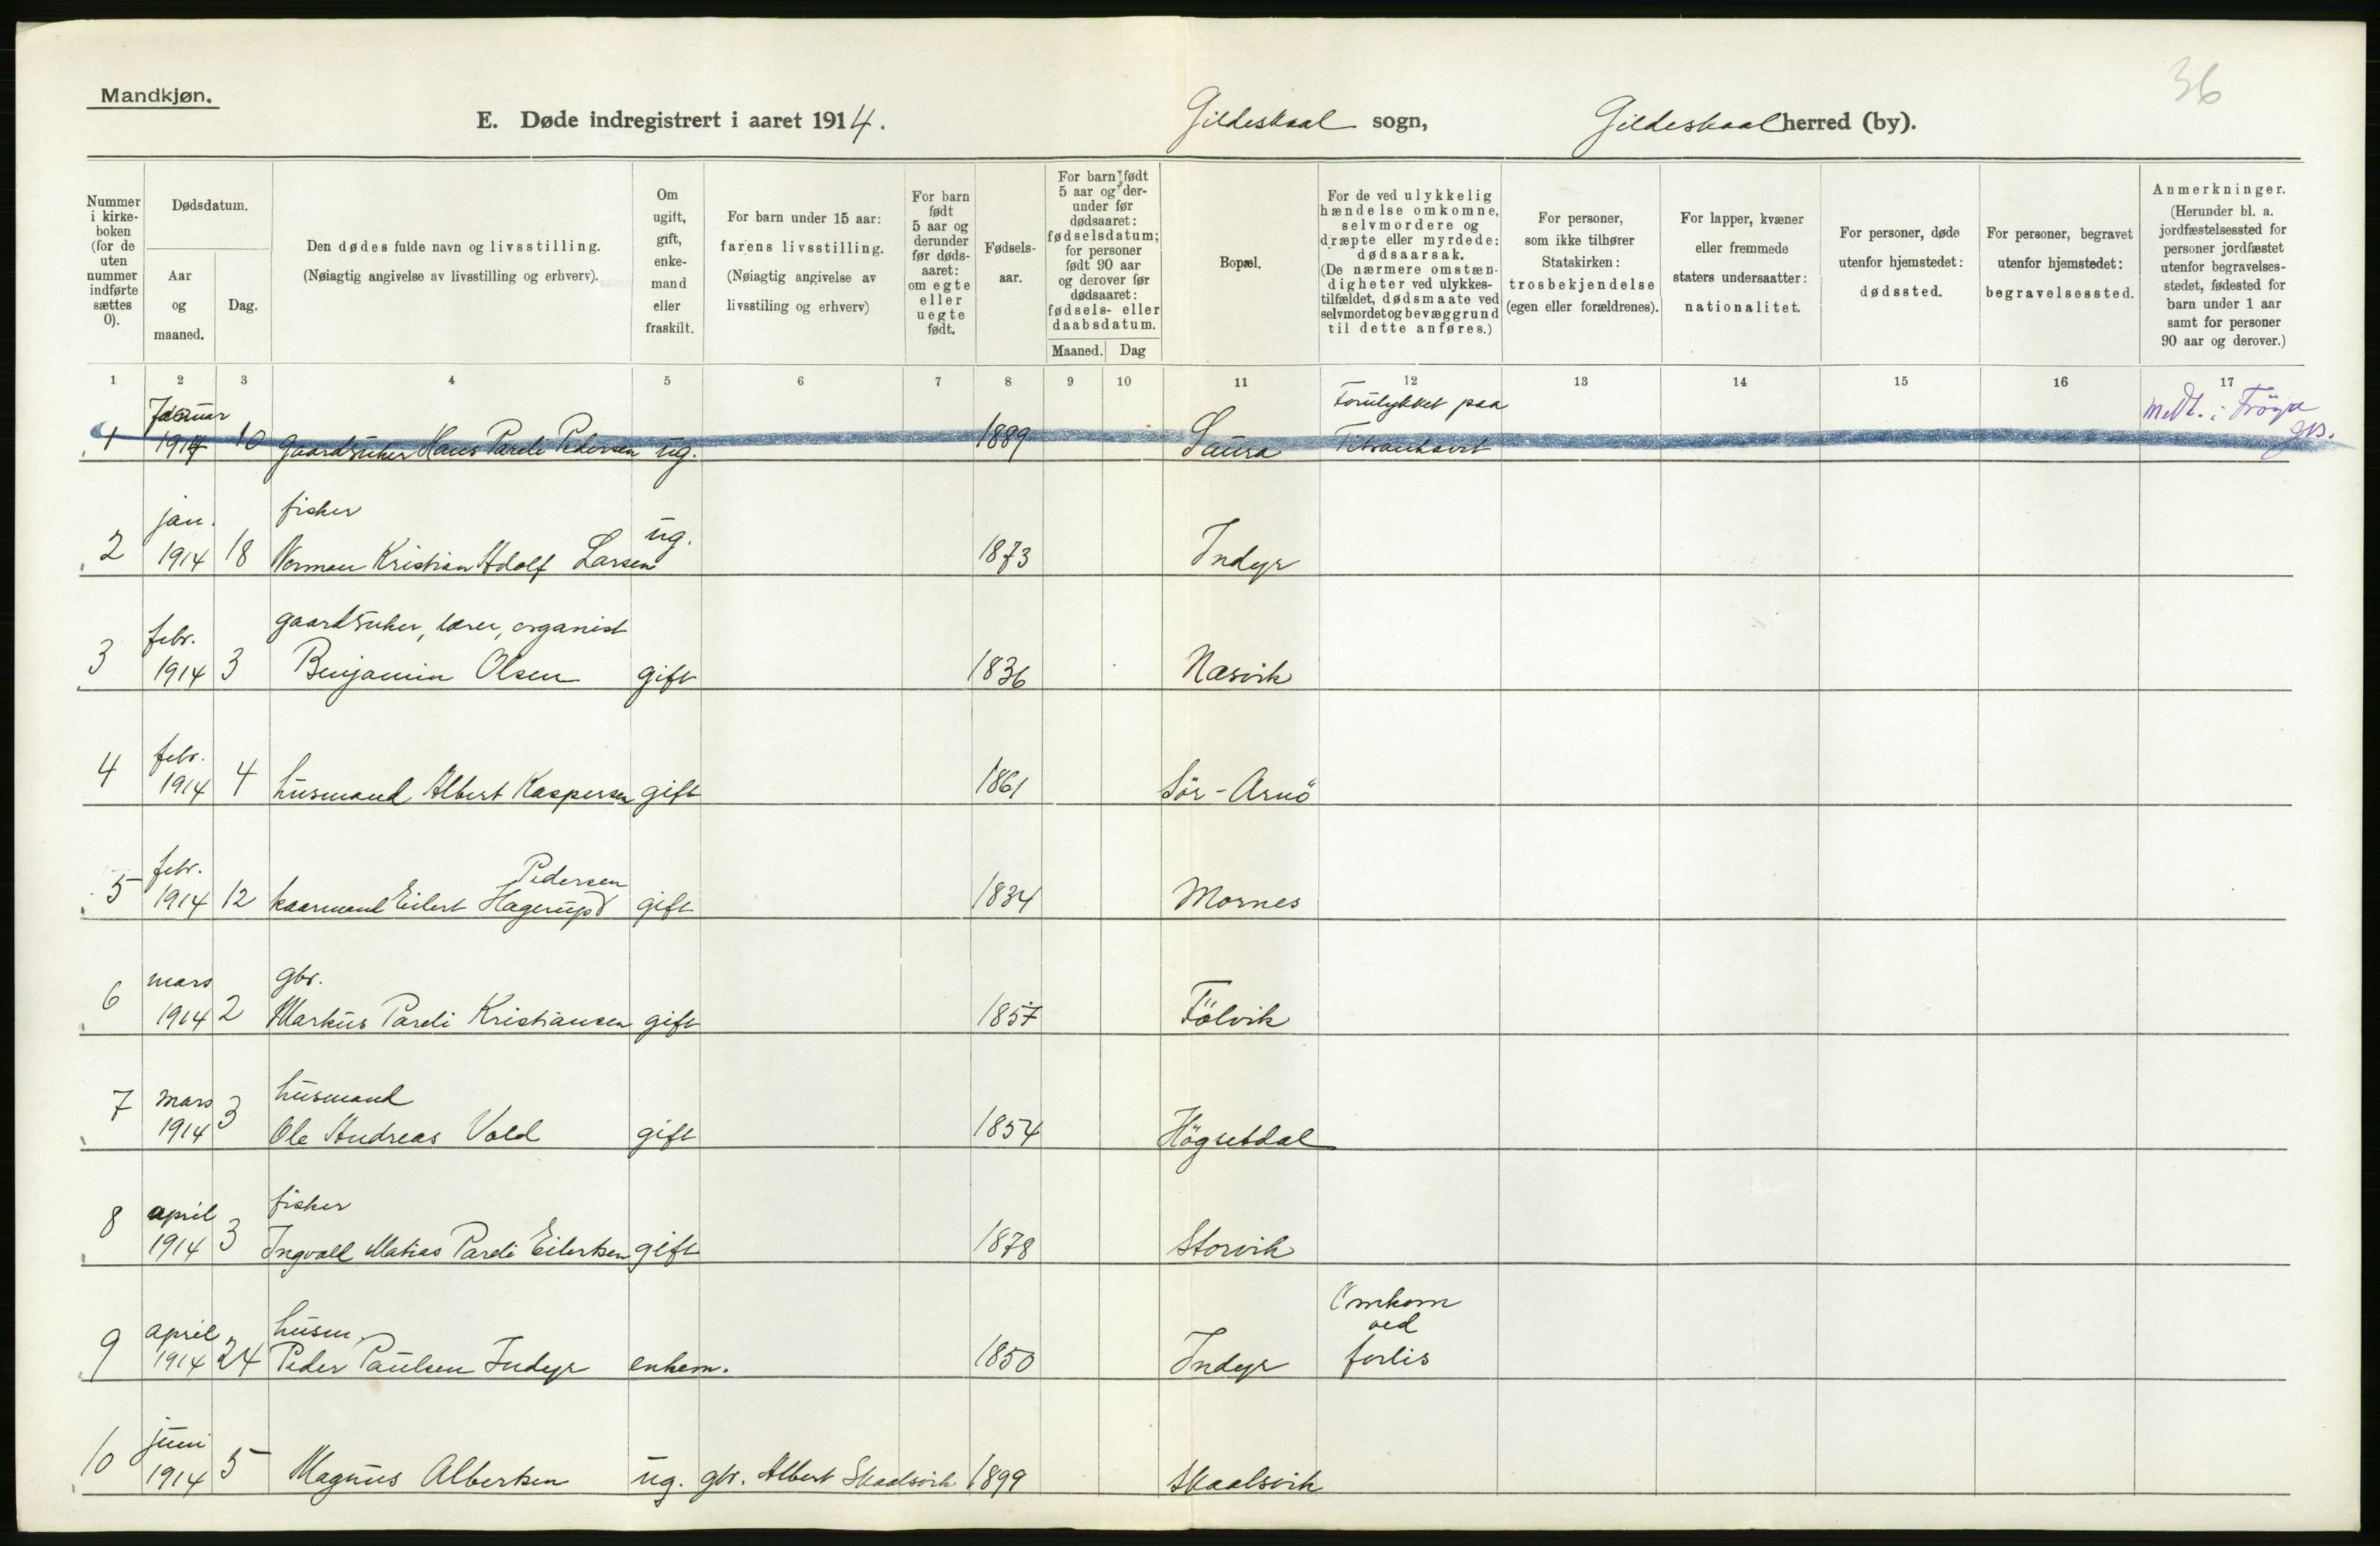 36
Mandkjøn.
E. Døde indregistrert i aaret 1914. Gildeskaal sogn, Gildeskaal herred (by).
Nummer i kirke- boken (for de uten nummer indførte sættes 0).
Dødsdatum.
Aar og maaned.
Dag.
Den dødes fulde navn og livsstilling.
(Nøiagtig angivelse av livsstilling og erhverv).
Om ugift, gift, enke- mand eller fraskilt.
For barn under 15 aar:
farens livsstilling.
(Nøiagtig angivelse av
livsstiling og erhverv)
For barn født 5 aar og derunder før døds- aaret: om egte eller uegte født.
Fødsels- aar.
For barn født 5 aar og der- under før dødsaaret: fødselsdatum; for personer født 90 aar og derover før dødsaaret: fødsels- eller daabsdatum.
Maaned. Dag
Bopæl.
For de ved ulykkelig hændelse omkomne, selvmordere og dræpte eller myrdede: dødsaarsak. (De nærmere omstæn- digheter ved ulykkes- tilfældet, dødsmaate ved selvmordet og bevæggrund til dette anføres.)
For personer, som ikke tilhører Statskirken: trosbekjendelse (egen eller forældrenes).
For lapper, kvæner eller fremmede staters undersaatter: nationalitet.
For personer, døde utenfor hjemstedet: dødssted.
For personer, begravet utenfor hjemstedet: begravelsessted.
Anmerkninger. (Herunder bl. a. jordfæstelsessted for personer jordfæstet utenfor begravelses- stedet, fødested for barn under 1 aar samt for personer 90 aar og derover.)
1 2 3 4 5 6 7 8 9 10 11 12 13 14 15 16 17
Januar Forulykket paa Medt. i Fröya
1 1914 10 gaardbruker Hans Pareli Pedersen ug. 1889 Saura
jan. fisker
2 1914 18 Norman Kristian Adolf Larsen ug. 1873 Indyr
febr. gaardbruker, lærer, organist
3 1914 3 Benjamin Olsen gift 1836 Næsvik
febr.
4 1914 4 husmand Albert Kaspersen gift 1861 Sör-Arnö
febr. Pedersen
5 1914 12 kaarmand Eilert Hagerup gift 1834 Mornes
mars gbr.
6 1914 2 Markus Pareli Kristiansen gift 1857 Fölvik
mars husmand
7 1914 3 Ole Andreas Vold gift 1854 Högsetdal
april fisker
8 1914 3 Ingvald Matias Pareli Eilertsen gift 1878 Storvik
april husm. Omkom ved
9 1914 24 Peder Paulsen Indyr enkem. 1850 Indyr forlis
juni
10 1914 5 Magnus Albertsen ug. gbr. Albert Skaalsvik 1899 Skaalsvik